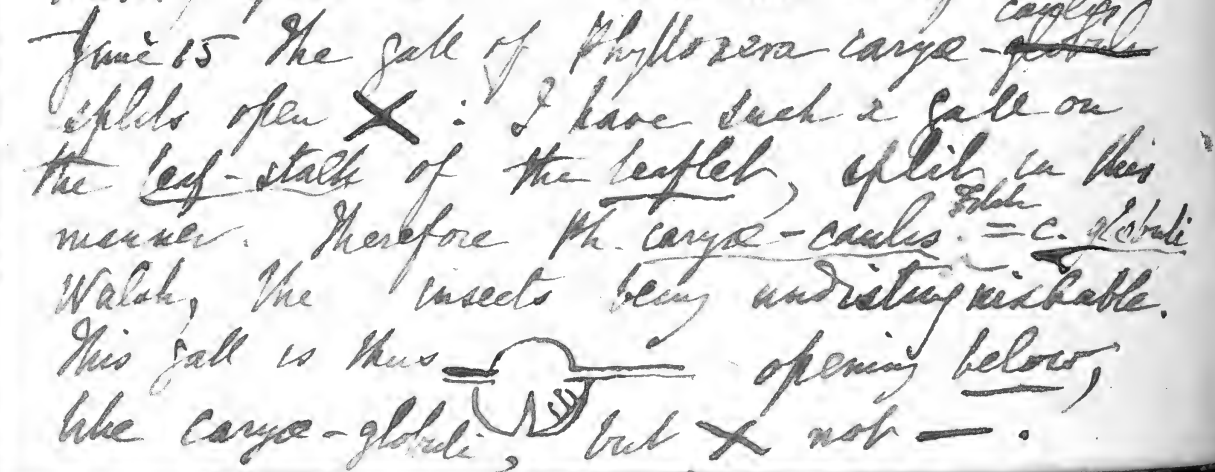 caulis
June 15 The gall of Phylloxera caryæ-globuli
splits open X : I have such a gall on
the leaf-stalk of the leaflet, split in this
manner. Therefore Ph. caryæ-caulis Fitch = c. globuli
Walsh, the insects being undistinguishable.
This gall is thus opening below,
like caryæ-globuli, but X not — .